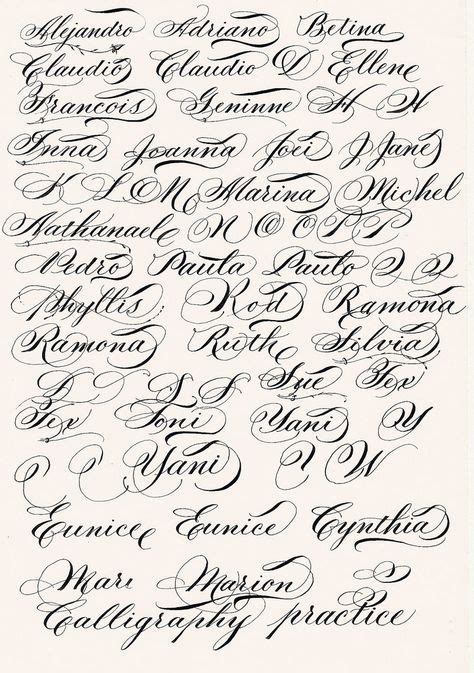 Alejandro Adriano Betina
Claudio Claudio D Ellene
Francois Geninne H H
Inna Joanna Joei J Jane
K L M Marina Michel
Nathanael N O O P P
Pedro Paula Paulo Q Q
Phyllis Rod Ramona
Ramona Ruth Silvia
S S S Sue Tex
Tex Toni Yani Y
Yani W
Eunice Eunice Cynthia
Mari Marion
Calligraphy practice